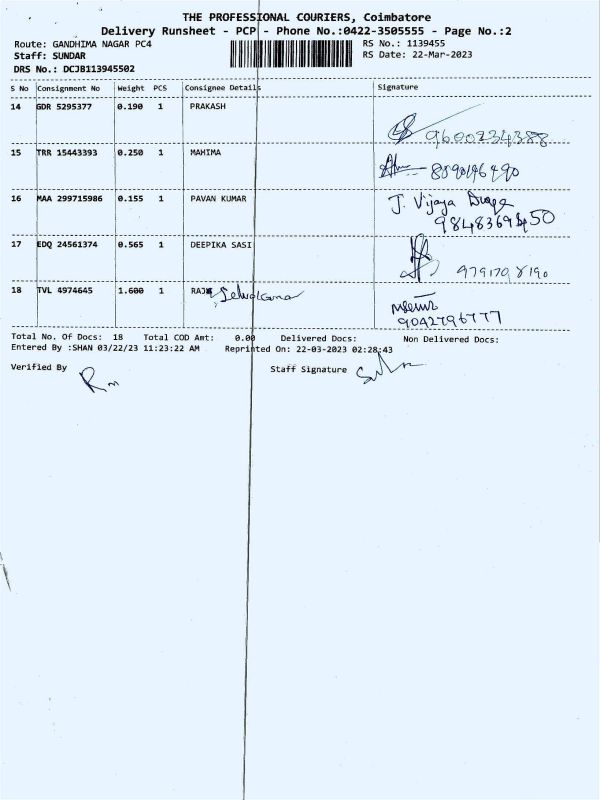 THE PROFESSIONAL COURIERS, Coimbatore
Delivery Runsheet - PCP - Phone No.:0422-3505555 - Page No.:2
Route: GANDHIMA NAGAR PC4 RS No.: 1139455
Staff: SUNDAR RS Date: 22-Mar-2023
DRS No.: DCJB113945502
S No Consignment No Weight PCS Consignee Details Signature
14 GDR 5295377 0.190 1 PRAKASH
9600234388
15 TRR 15443393 0.250 1 MAHIMA
16 MAA 299715986 0.155 1 PAVAN KUMAR J. Vijaya
17 EDQ 24561374 0.565 1 DEEPIKA SASI
18 TVL 4974645 1.600 1
9042796777
Total No. Of Docs: 18 Total COD Amt: 0.00 Delivered Docs: Non Delivered Docs:
Entered By :SHAN 03/22/23 11:23:22 AM Reprinted On: 22-03-2023 02:28:43
Verified By Staff Signature